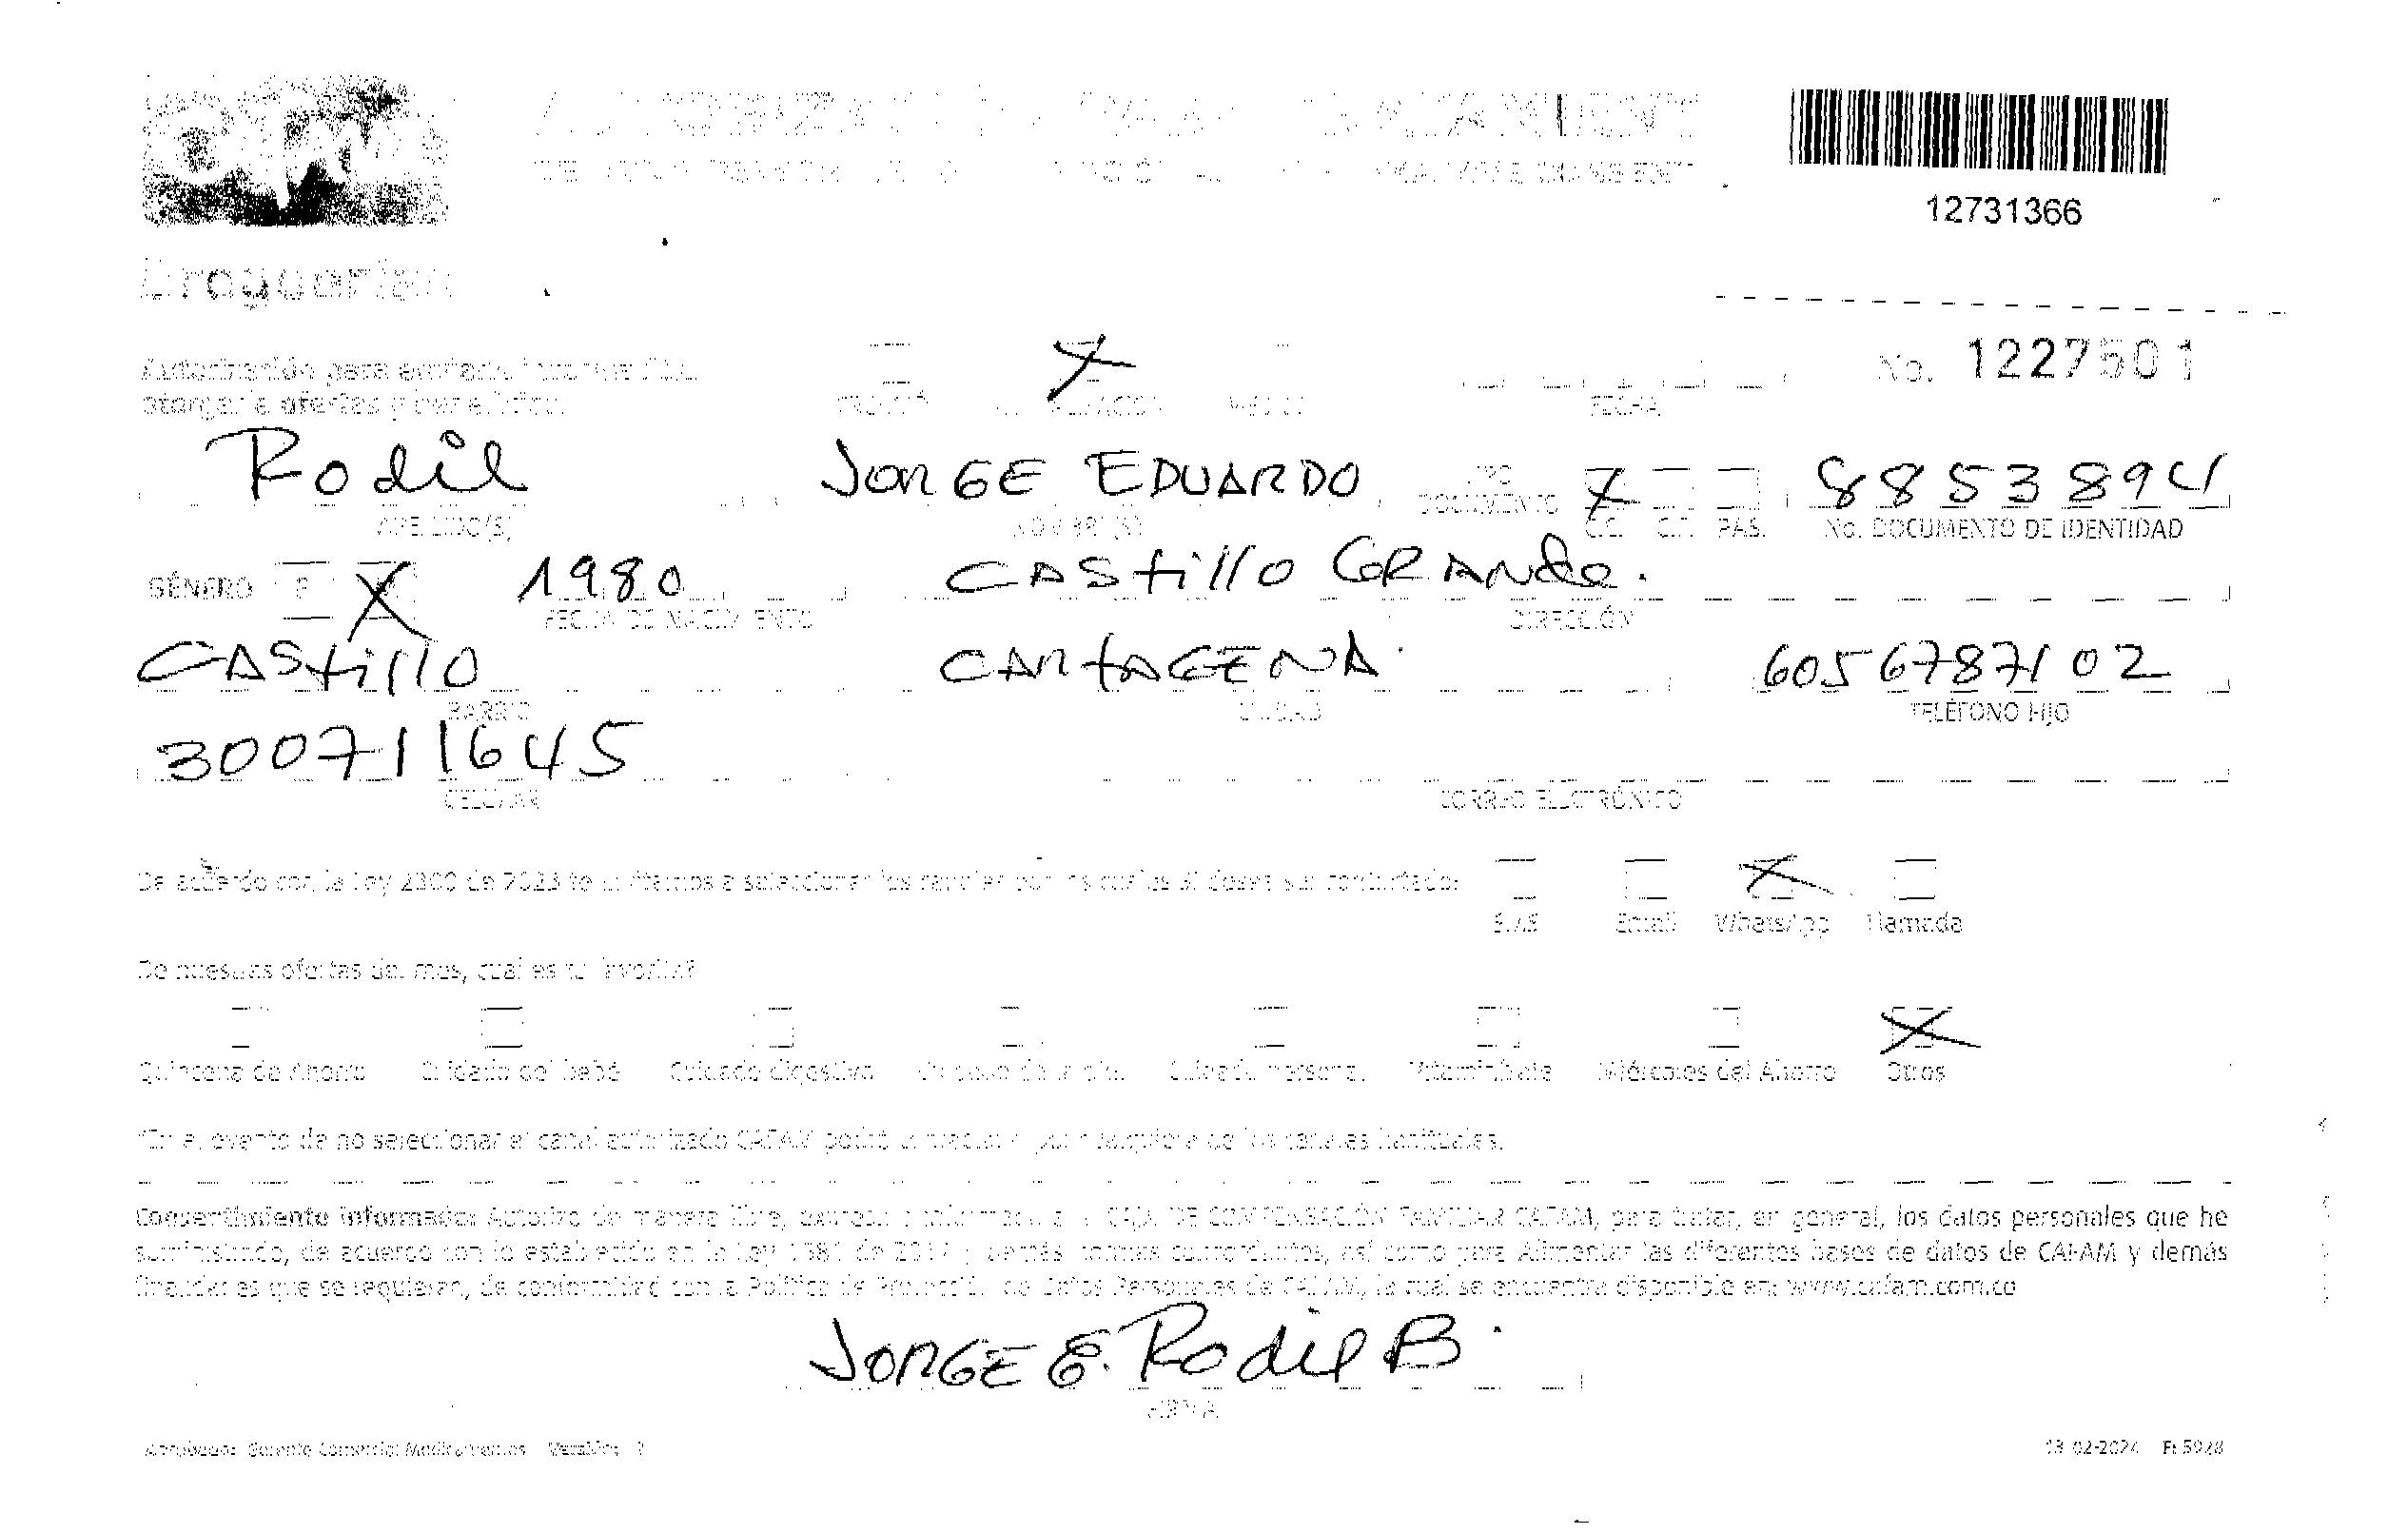 12731366
Droguerías
Autorización para
otorgar ofertas y
FECHA
No. 1227501
Rodil JORGE EDUARDO DOCUMENTO X 8853894
APELLIDO(S) NOMBRE(S) C.C. C.E. PAS. No. DOCUMENTO DE IDENTIDAD
GÉNERO F X 1980 CAStillo GRANde.
FECHA DE NACIMIENTO DIRECCIÓN
CAStillo CARtAGENA. 6056787102
BARRIO CIUDAD TELÉFONO FIJO
300711645
CELULAR CORREO ELECTRÓNICO
De acuerdo con la Ley 2300 de 2023 te invitamos a seleccionar los canales por los cuales desea ser contactado:
X
SMS Email WhatsApp Llamada
De nuestras ofertas del mes, cual es tu favorita?
X
Quincena de Ahorro Cuidado del bebé Cuidado digestivo Cuidado personal Miércoles del Ahorro Otros
*En el evento de no seleccionar el canal autorizado CAFAM podrá de los canales habituales.
Consentimiento informado: Autorizo de manera libre, expresa a la CAJA DE COMPENSACIÓN FAMILIAR CAFAM, para tratar, en general, los datos personales que he
suministrado, de acuerdo con lo establecido en la Ley 1581 de 2012 y demás normas concordantes, así como para Alimentar las diferentes bases de datos de CAFAM y demás
finalidades que se requieran, de conformidad con la Política de Protección de Datos Personales de CAFAM, la cual se encuentra disponible en: www.cafam.com.co
JORGE E. Rodil B.
FIRMA
Aprobado: Gerente Comercial Medicamentos Versión:
02-2024